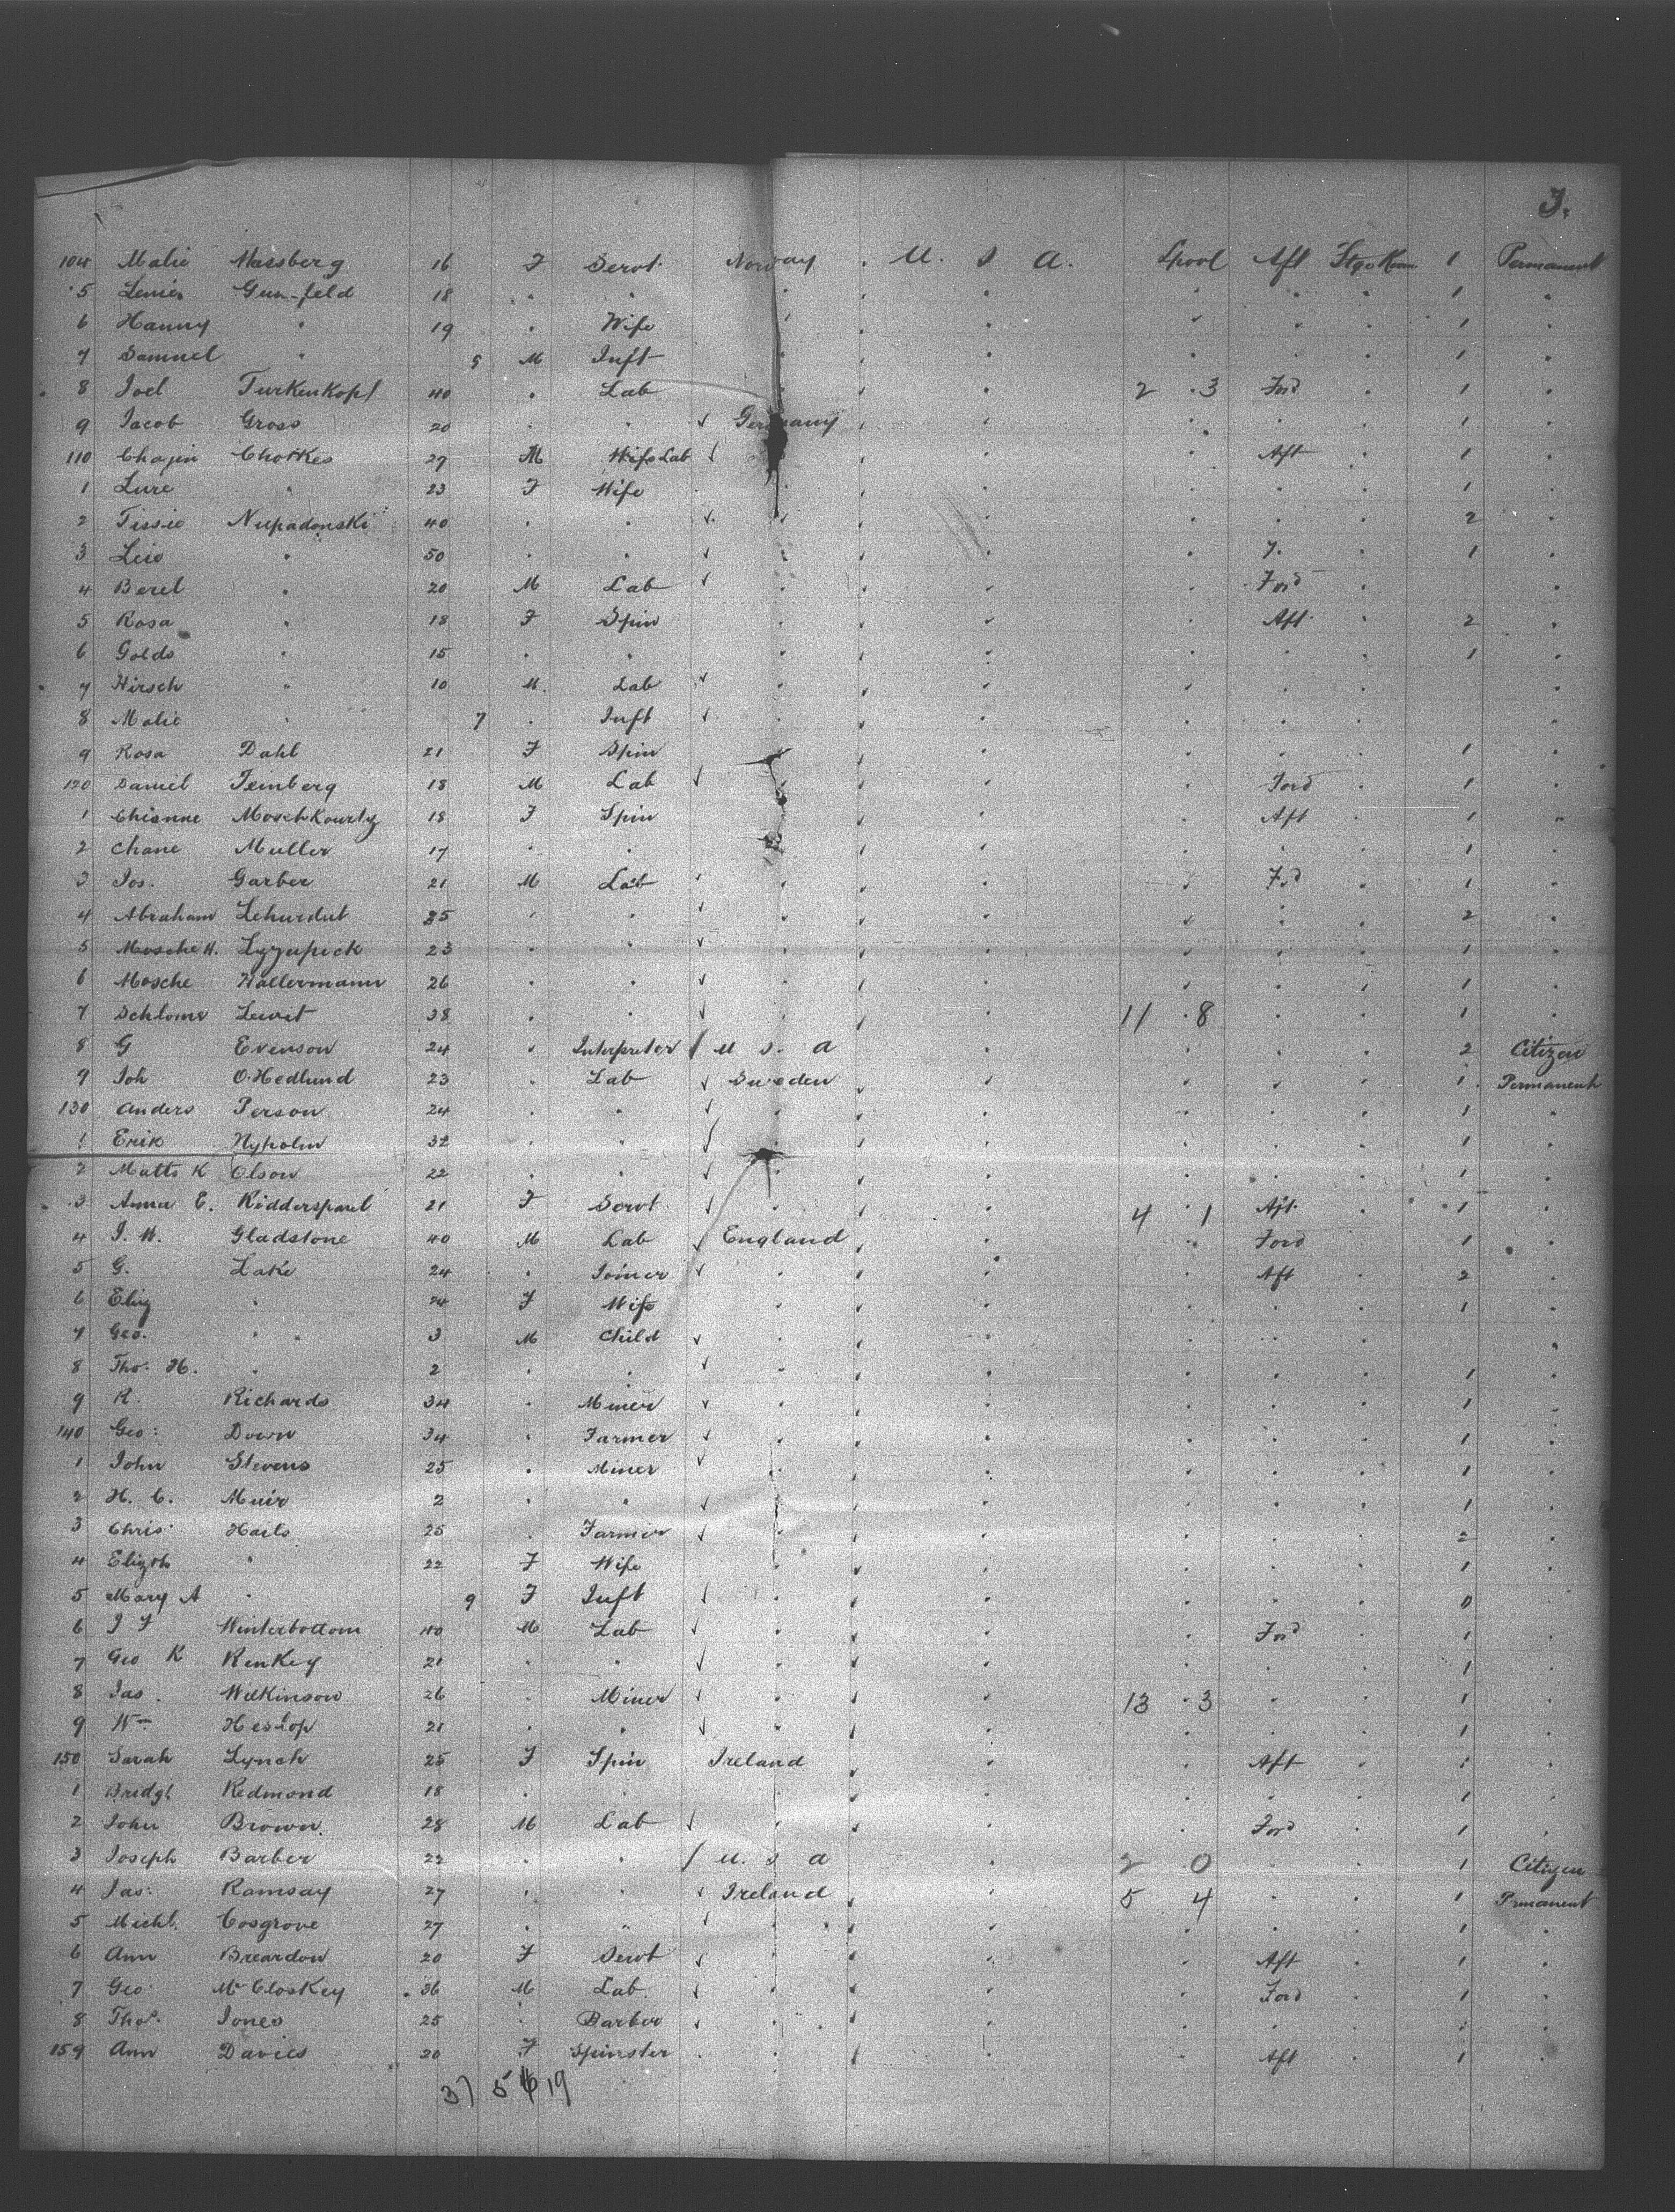 3.
104 Malie Massberg 16 F Servt. Norway U. S A. Lpool Aft Stge Room 1 Permanent
5 Gun-feld 18 " " " " " " " 1 "
6 Hanny " 19 " Wife " " " " " 1 "
7 Samuel " 5 M Inft " " " " " 1 "
8 Joel Turkenkopf 40 " Lab " " 2 3 Ford " 1 "
9 Jacob Gross 20 " " Germany " " " " 1 "
110 Chajin Chotkes 27 M Wife Lab " " " Aft " 1 "
1 Lure " 23 F Wife " " " " " 1 "
2 Tissie Niepadonski 40 " " " " " " " 2 "
3 Leie " 50 " " " " " " 1 "
4 Berel " 20 M Lab " " " Ford "
5 Rosa " 18 F Spin " " " Aft " 2 "
6 Golds " 15 " " " " " " " 1 "
7 Hirsch " 10 M. Lab " " " " " "
8 Malie " 7 " Inft " " " " " "
9 Rosa Dahl 21 F Spin " " " " " 1 "
120 Daniel Feinberg 18 M Lab " " " Ford " 1 "
1 Chianne Moschkowitz 18 F Spin " " " Aft " 1 "
2 Chane Muller 17 " " " " " " " 1 "
3 Jos. Garber 21 M Lab " " " Fd " 1 "
4 Abraham 35 " " " " " " " 2 "
5 Mosche H. 23 " " " " " " " 1 "
6 Mosche Wallermann 26 " " " " " " " 1 "
7 Schlome 38 " " " " 11 8 " " 1 "
8 G Evenson 24 " Interpreter U S. A " " " " 2 Citizen
9 Joh O. Hedlund 23 " Lab Sweden " " " " 1 Permanent
130 Anders Person 24 " " " " " " " 1 "
1 Erik 32 " " " " " " " 1 "
2 Matts K Olson 22 " " " " " " " 1 "
3 Anna E. 21 F Servt. " " 4 1 Aft. " 1 "
4 J. H. Gladstone 40 M Lab England " " Ford " 1 "
5 G. Lake 24 " Joiner " " " Aft " 2 "
6 Eliz " 24 F Wife " " " " " 1 "
7 Geo. " " 3 M Child " " " " " "
8 Tho. H. " 2 " " " " " " " 1 "
9 R. Richards 34 " Miner " " " " " 1 "
140 Geo: Down 34 " Farmer " " " " " 1 "
1 John Stevens 25 " Miner " " " " " 1 "
2 H. C. Muir 2 " " " " " " " 1 "
3 Chris: Hails 25 " Farmer " " " " " 2 "
4 Elizth " 22 F Wife " " " " " 1 "
5 Mary A " 9 F Inft " " " " " 0 "
6 J F Winterbottom 40 M Lab " " " Ford " 1 "
7 Geo K Renkey 21 " " " " " " " 1 "
8 Jas. Wilkinson 26 " Miner " " 13 3 " " 1 "
9 Wm Heslop 21 " " " " " " " 1 "
150 Sarah Lynch 25 F Spin Ireland " " Aft " 1 "
1 Bridgt Redmond 18 " " " " " " " 1 "
2 John Brown 28 M Lab " " " Ford " 1 "
3 Joseph Barber 22 " " U. S A " 2 0 " " 1 Citizen
4 Jas: Ramsay 27 " " Ireland " 5 4 " " 1 Prmanent
5 Michl. Cosgrove 27 " " " " " " " 1 "
6 Ann Breardon 20 F Servt " " " Aft " 1 "
7 Geo McCloskey 36 M Lab. " " " Ford " 1 "
8 Thos. Jones 25 " Barber " " " " " "
159 Ann Davies 20 F Spinster " " " Aft " 1 "